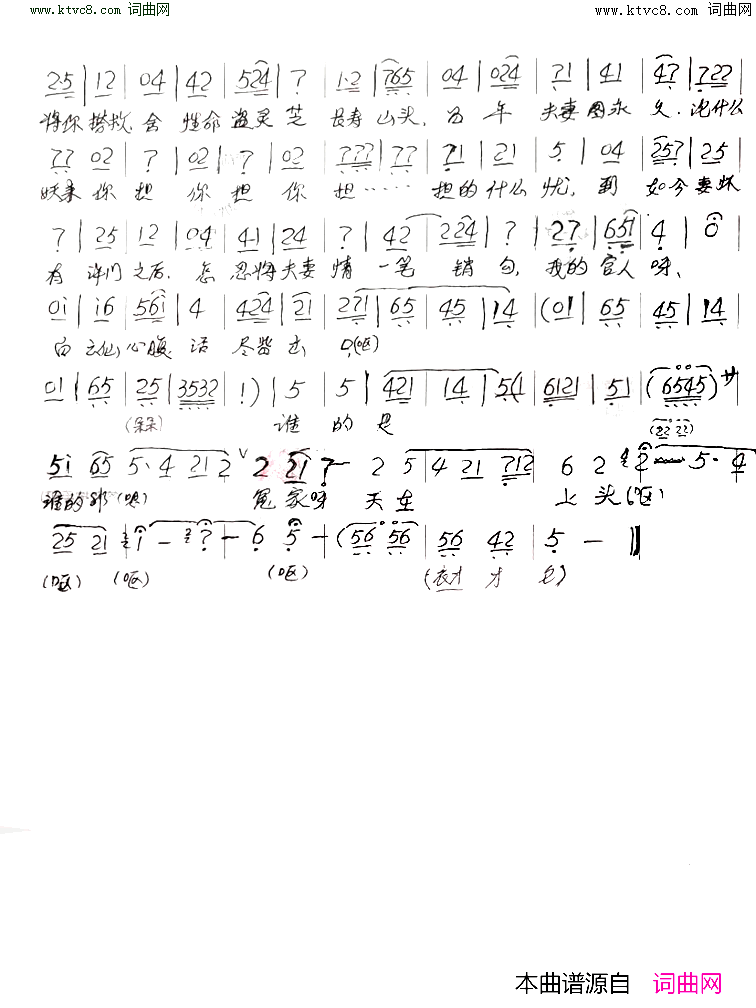 www.ktvc8.com 词曲网 www.ktvc8.com 词曲网
2·5 | 12 | 04 | 42 | 524 | 7 | 1·2 | 765 | 04 | 024 | 71 | 41 | 47 | 722
将你搭救 舍 性命 盗灵芝 长寿山头, 为 年 夫妻图永 久. 说什么
77 02 | 7 | 02 | 7 | 02 | 777 | 77 | 71 | 21 | 5 | 04 | 257 | 25
妖来 你 想 你 想 你 想…… 想的什么 忧, 到 如今 妻怀
7 | 25 | 12 | 04 | 41 | 24 | 7 | 42 | 224 | 7 | 27 | 651 | 4 | 0
有 许门 之后. 怎 忍将夫妻 情 一笔 销 勾, 我的 官人 呀、
01 | 16 | 561 | 4 | 424 | 21 | 271 | 65 | 45 | 14 | (01 | 65 | 45 | 14
白 云仙 心腹 话 尽皆 出 口(呕)
01 | 65 | 25 | 3532 | 1) | 5 | 5 | 421 | 14 | 54 | 6121 | 51 | (6545) サ
谁 的 是 (22 22)
51 65 5·4 21 2 ∨ 2 21 7 — 2 5 | 4 21 712 | 6 2 2 5·4
谁的非 冤 家呀 天在 上 头(呕)
25 21 1 — 7 — 6 5 — (56 56 | 56 42 | 5 — ‖
(呕) (呕) (呕) (衣才 才 仓)
本曲谱源自 词曲网